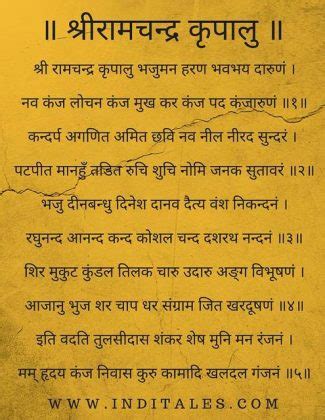 ॥ श्रीरामचन्द्र कृपालु ॥
श्री रामचन्द्र कृपालु भजुमन हरण भवभय दारुणं ।
नव कंज लोचन कंज मुख कर कंज पद कंजारुणं ॥१॥
कन्दर्प अगणित अमित छवि नव नील नीरद सुन्दरं ।
पटपीत मानहुँ तडित रुचि शुचि नोमि जनक सुतावरं ॥२॥
भजु दीनबन्धु दिनेश दानव दैत्य वंश निकन्दनं ।
रघुनन्द आनन्द कन्द कोशल चन्द दशरथ नन्दनं ॥३॥
शिर मुकुट कुंडल तिलक चारु उदारु अङ्ग विभूषणं ।
आजानु भुज शर चाप धर संग्राम जित खरदूषणं ॥४॥
इति वदति तुलसीदास शंकर शेष मुनि मन रंजनं ।
मम् हृदय कंज निवास कुरु कामादि खलदल गंजनं ॥५॥
WWW.INDITALES.COM